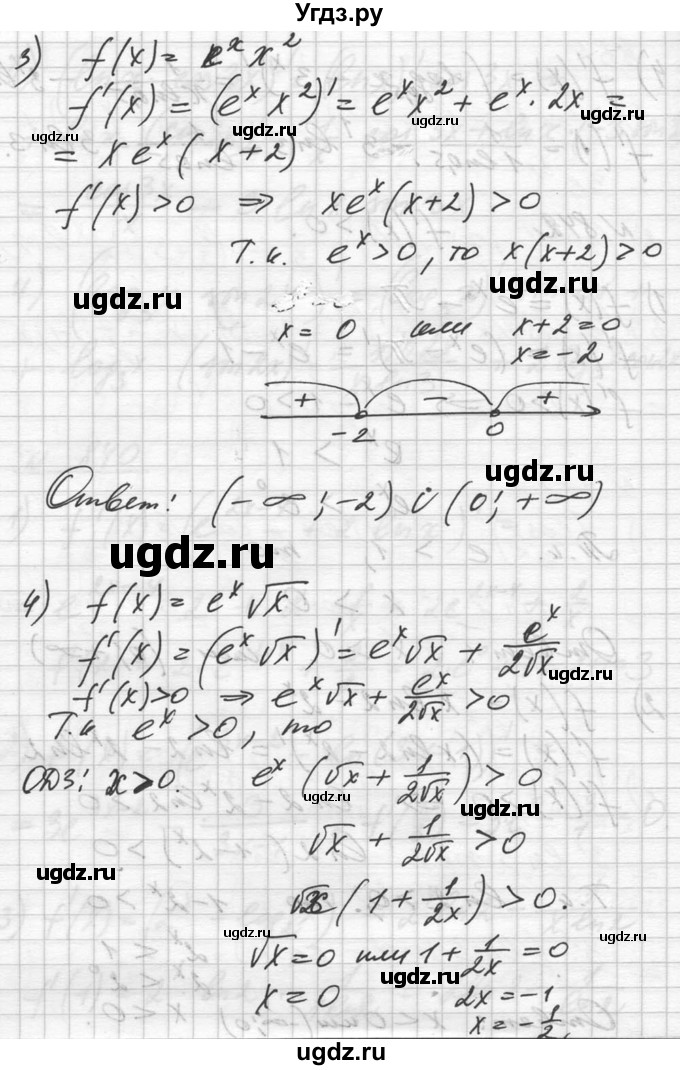 Угдз.ру
3) f(x) = e^x x^2
f'(x) = (e^x x^2)' = e^x x^2 + e^x · 2x =
ugdz.ru ugdz.ru ugdz.ru
= x e^x (x+2)
f'(x) > 0 ⇒ x e^x (x+2) > 0
Т.к. e^x > 0, то x(x+2) > 0
ugdz.ru ugdz.ru
x = 0 или x+2=0
x = -2
+ - +
-2 0
ugdz.ru
Ответ: (-∞; -2) ∪ (0; +∞)
ugdz.ru
4) f(x) = e^x √x
f'(x) = (e^x √x)' = e^x √x + e^x/(2√x)
ugdz.ru
f'(x) > 0 ⇒ e^x √x + e^x/(2√x) > 0
Т.к e^x > 0, то
ОДЗ: x > 0. e^x (√x + 1/(2√x)) > 0
ugdz.ru ugdz.ru
√x + 1/(2√x) > 0
ugdz.ru
√x (1 + 1/(2x)) > 0.
ugdz.ru ugdz.ru
√x = 0 или 1 + 1/(2x) = 0
ugdz.ru
x = 0 2x = -1
x = -1/2
ugdz.ru
ugdz.ru